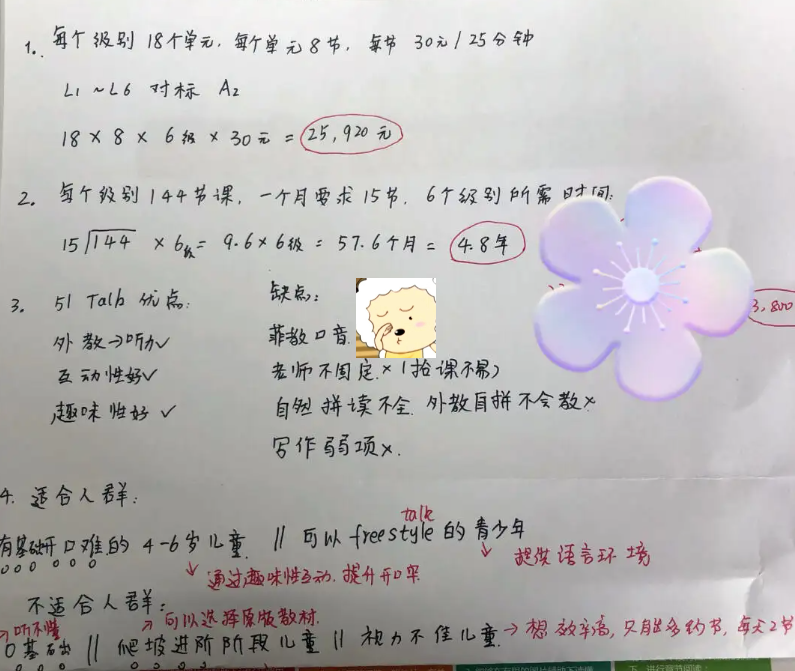 1. 每个级别18个单元，每个单元8节，每节 30元/25分钟
L1～L6 对标 A2
18 × 8 × 6级 × 30元 = 25,920元
2. 每个级别144节课，一个月要求15节，6个级别所需时间:
15 144 × 6级 = 9.6×6级 = 57.6个月 = 4.8年
3. 51 Talk 优点:
缺点:
3,800
外教→听力✓
菲教口音.
互动性好✓
老师不固定.×(抢课不易)
趣味性好 ✓
自然拼读不全. 外教自拼不会教×
写作弱项×.
4. 适合人群:
talk
有基础开口难的 4-6岁儿童. // 可以freestyle的青少年
提供语言环境
通过趣味性互动.提升开口率
不适合人群:
可以选择原版教材.
听不懂
0基础 // 爬坡进阶阶段儿童 // 视力不佳儿童.→想效率高,只能多约节,每天2节